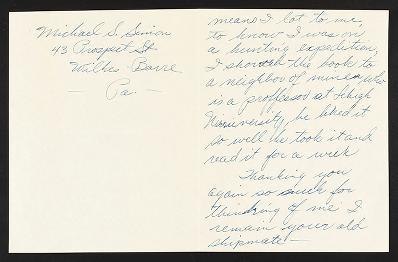 Michael S. Simon
43 Prospect St
Wilkes-Barre
— Pa. —
means I lot to me,
to know I was on
a hunting expedition,
I showed the book to
a neighbor of mine, who
is a proffessor at Lehigh
University, he liked it
so well he took it and
read it for a week
Thanking you
again so much for
thinking of me I
remain your old
shipmate —